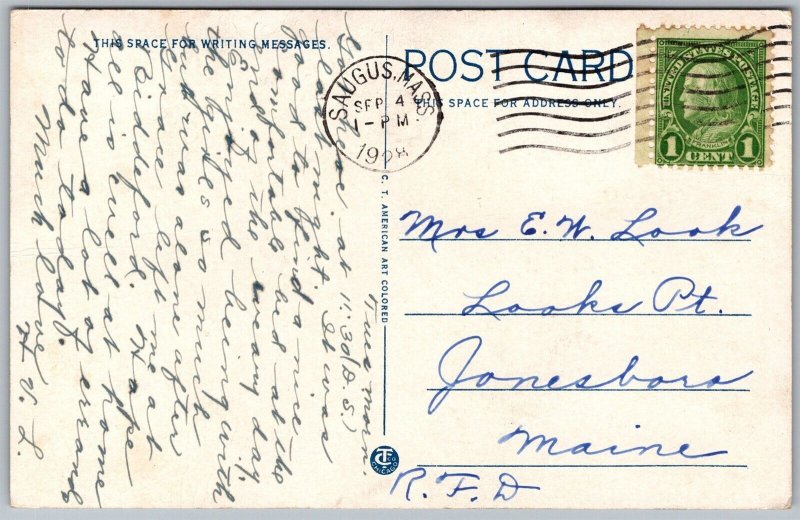 THIS SPACE FOR WRITING MESSAGES.
POST CARD
THIS SPACE FOR ADDRESS ONLY.
SAUGUS, MASS.
SEP 4
1-PM
1928
UNITED STATES POSTAGE
FRANKLIN
1 CENT 1
Tues. morn.
Got here at 11:30 (D.S.)
last night. It was
good to find a nice
comfortable bed at the
end of the weary day.
Enjoyed being with
the girls so much
but was alone after
Grace left me at
Biddeford. Hope
all is well at home
Have a lot of errands
to do today.
Much love
H. V. L.
C. T. AMERICAN ART COLORED
CT CO
CHICAGO
Mrs E. W. Look
Looks Pt.
Jonesboro
Maine
R. F. D